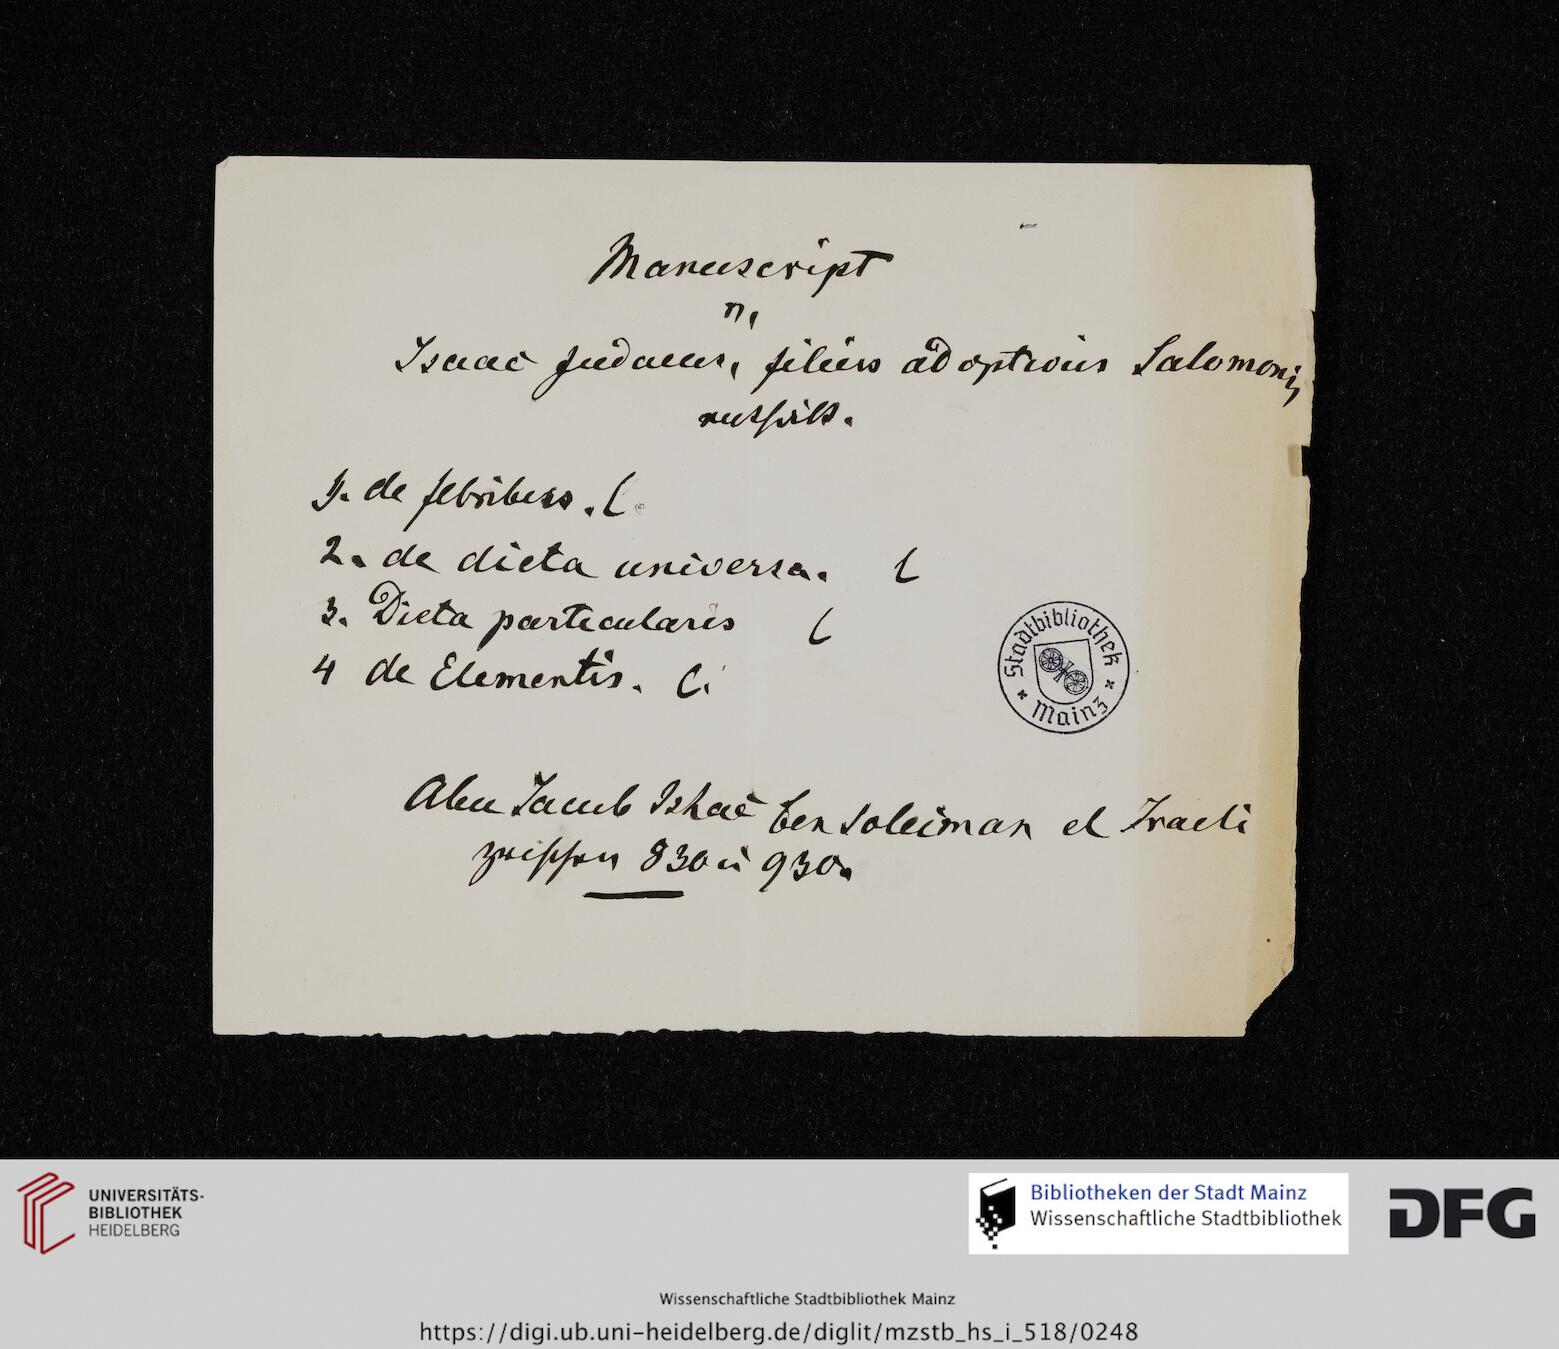 Manuscript
v.
Isaac Judaeus, filius adoptivus Salomonis,
enthält.
1. de febribus. (.
2. de dieta universa. (
3. Dieta particularis (
4 de Elementis. (.
Stadtbibliothek
Mainz
Abu Jacub Ishac ben Soleiman el Israeli
zwischen 830 u 930.
UNIVERSITÄTS-
BIBLIOTHEK
HEIDELBERG
Bibliotheken der Stadt Mainz
Wissenschaftliche Stadtbibliothek
DFG
Wissenschaftliche Stadtbibliothek Mainz
https://digi.ub.uni-heidelberg.de/diglit/mzstb_hs_i_518/0248